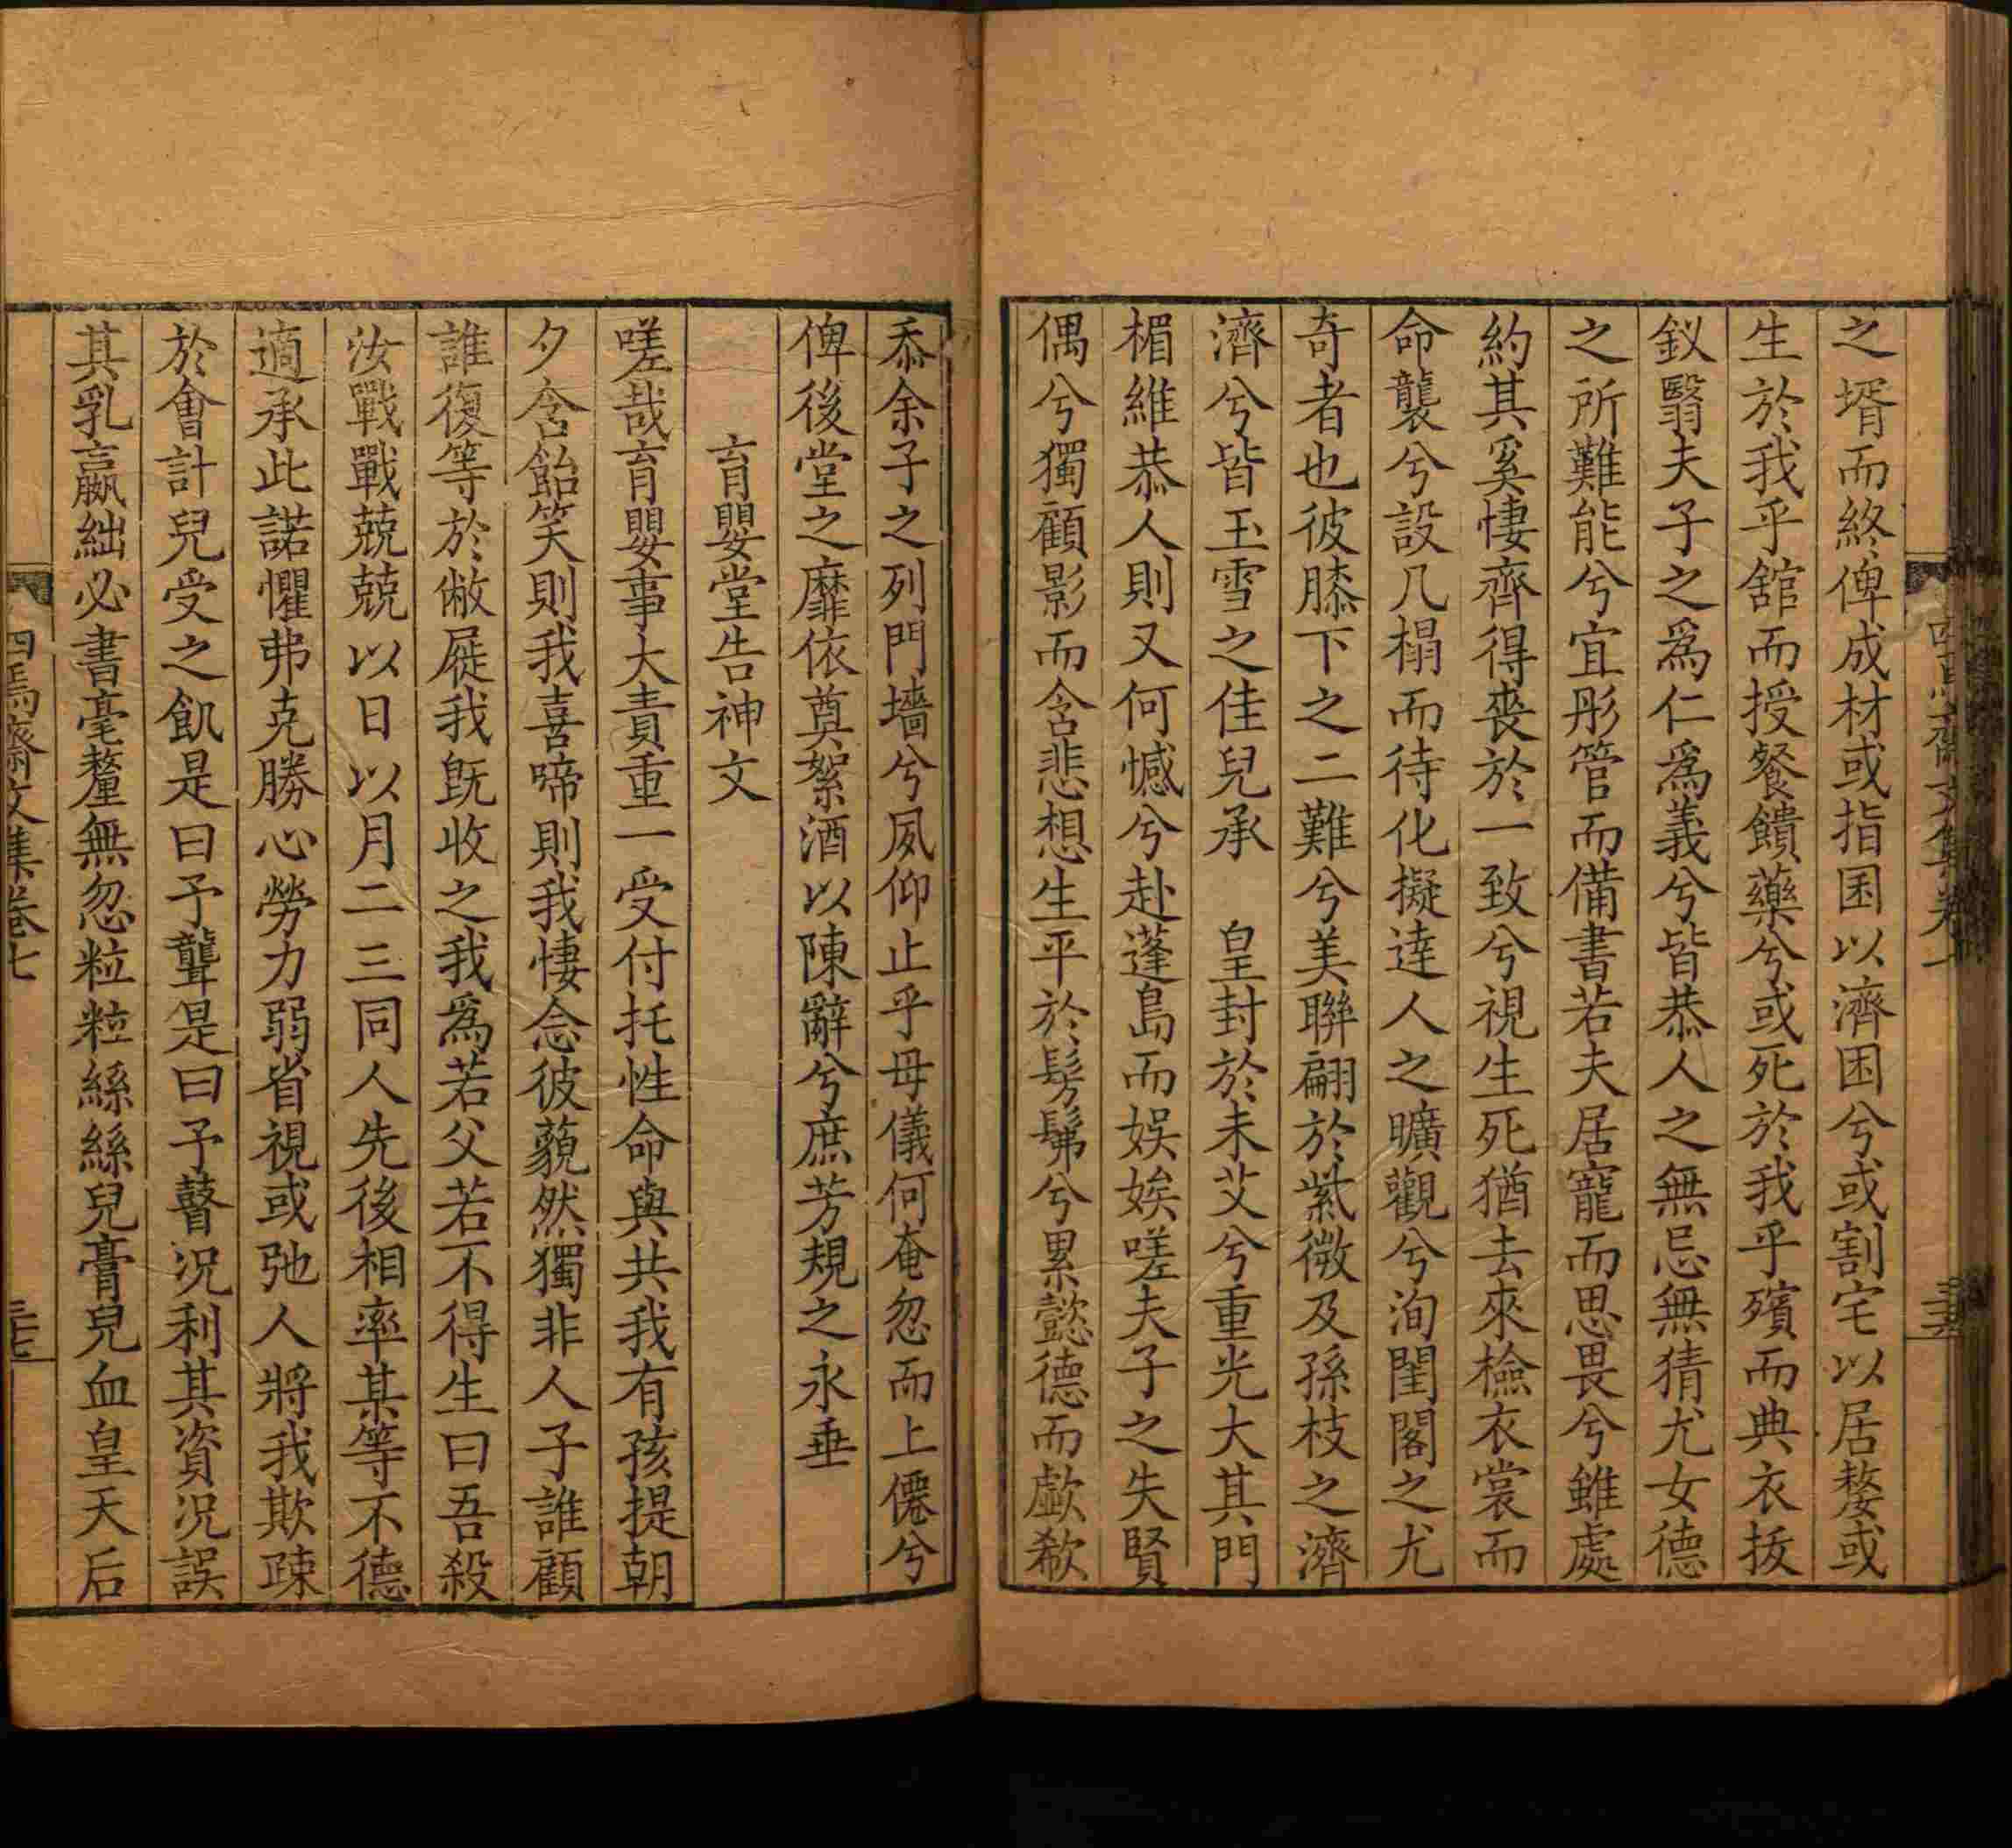 之壻而終俾成材或指囷以濟困兮或割宅以居嫠或
生於我乎舘而授餐饋藥兮或死於我乎殯而典衣拔
釵翳夫子之爲仁爲義兮皆恭人之無忌無猜尤女德
之所難能兮宜彤管而備書若夫居寵而思畏兮雖處
約其奚悽齊得喪於一致兮視生死猶去來檢衣裳而
命襲兮設几榻而待化擬逹人之曠觀兮洵閨閣之尤
奇者也彼膝下之二難兮美聯翩於紫微及孫枝之濟
濟兮皆玉雪之佳兒承　皇封於未艾兮重光大其門
楣維恭人則又何憾兮赴蓬島而娱娭嗟夫子之失賢
偶兮獨顧影而含悲想生平於髣髴兮累懿德而歔欷
忝余子之列門墻兮夙仰止乎母儀何奄忽而上僊兮
俾後堂之靡依奠絮酒以陳辭兮庶芳規之永垂
育嬰堂告神文
嗟哉育嬰事大責重一受付托性命與共我有孩提朝
夕含飴笑則我喜啼則我悽念彼藐然獨非人子誰顧
誰復等於敝屣我既收之我爲若父若不得生曰吾殺
汝戰戰兢兢以日以月二三同人先後相率某等不德
適承此諾懼弗克勝心勞力弱省視或弛人將我欺疎
於會計兒受之飢是曰予聾是曰予瞽況利其資況誤
其乳嬴絀必書毫釐無忽粒粒絲絲兒膏兒血皇天后
四焉齋文集卷七
三七